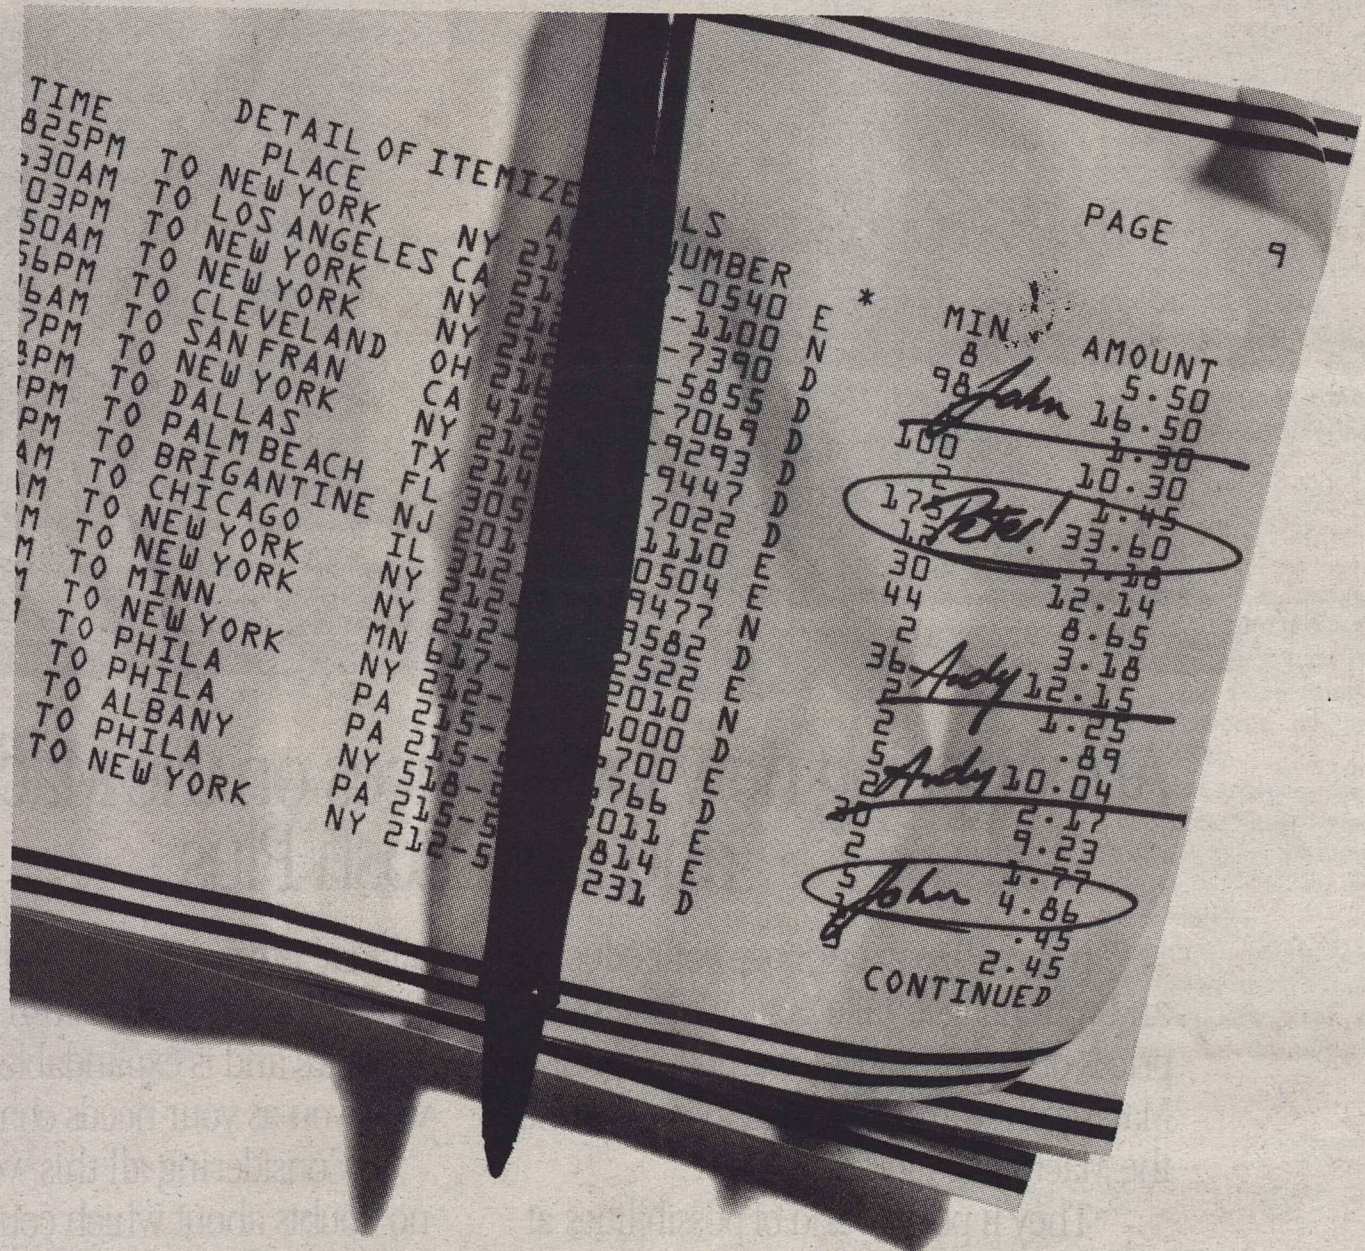 DETAIL OF ITEMIZE LS PAGE 9
TIME PLACE A NUMBER * MIN AMOUNT
825PM TO NEW YORK NY 21 -0540 E 8 5.50
30AM TO LOS ANGELES CA 21 -1100 N 98 John 16.50
03PM TO NEW YORK NY 21 -7390 D 1.30
50AM TO NEW YORK NY 21 -5855 D 100 10.30
56PM TO CLEVELAND OH 21 -7069 D 2 1.45
6AM TO SAN FRAN CA 41 -9293 D 175 Peter! 33.60
7PM TO NEW YORK NY 212 -9447 D
8PM TO DALLAS TX 214 7022 D 30 12.14
PM TO PALM BEACH FL 305 1110 E 44 8.65
PM TO BRIGANTINE NJ 201 0504 E 2 3.18
AM TO CHICAGO IL 312 9477 N 36 Andy 12.15
M TO NEW YORK NY 212 9582 D 2 1.25
M TO NEW YORK NY 212- 2522 E 2 .89
M TO MINN MN 617- 2010 N 5 Andy 10.04
TO NEW YORK NY 212- 1000 D 2 2.17
TO PHILA PA 215- 700 E 30 9.23
TO PHILA PA 215- 766 D 2 1.77
TO ALBANY NY 518- 2011 E 5 John 4.86
TO PHILA PA 215-5 814 E .45
TO NEW YORK NY 212-5 231 D 2.45
CONTINUED